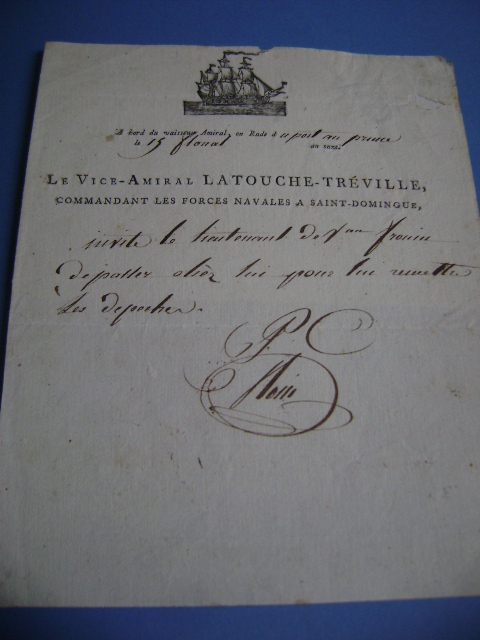 A bord du vaisseau Amiral, en Rade d u port au prince
le 15 floreal an onze.
LE VICE-AMIRAL LATOUCHE-TRÉVILLE,
COMMANDANT LES FORCES NAVALES A SAINT-DOMINGUE,
invite le lieutenant de Vau
de passer chez lui pour lui remettre
les depeches.
P. C